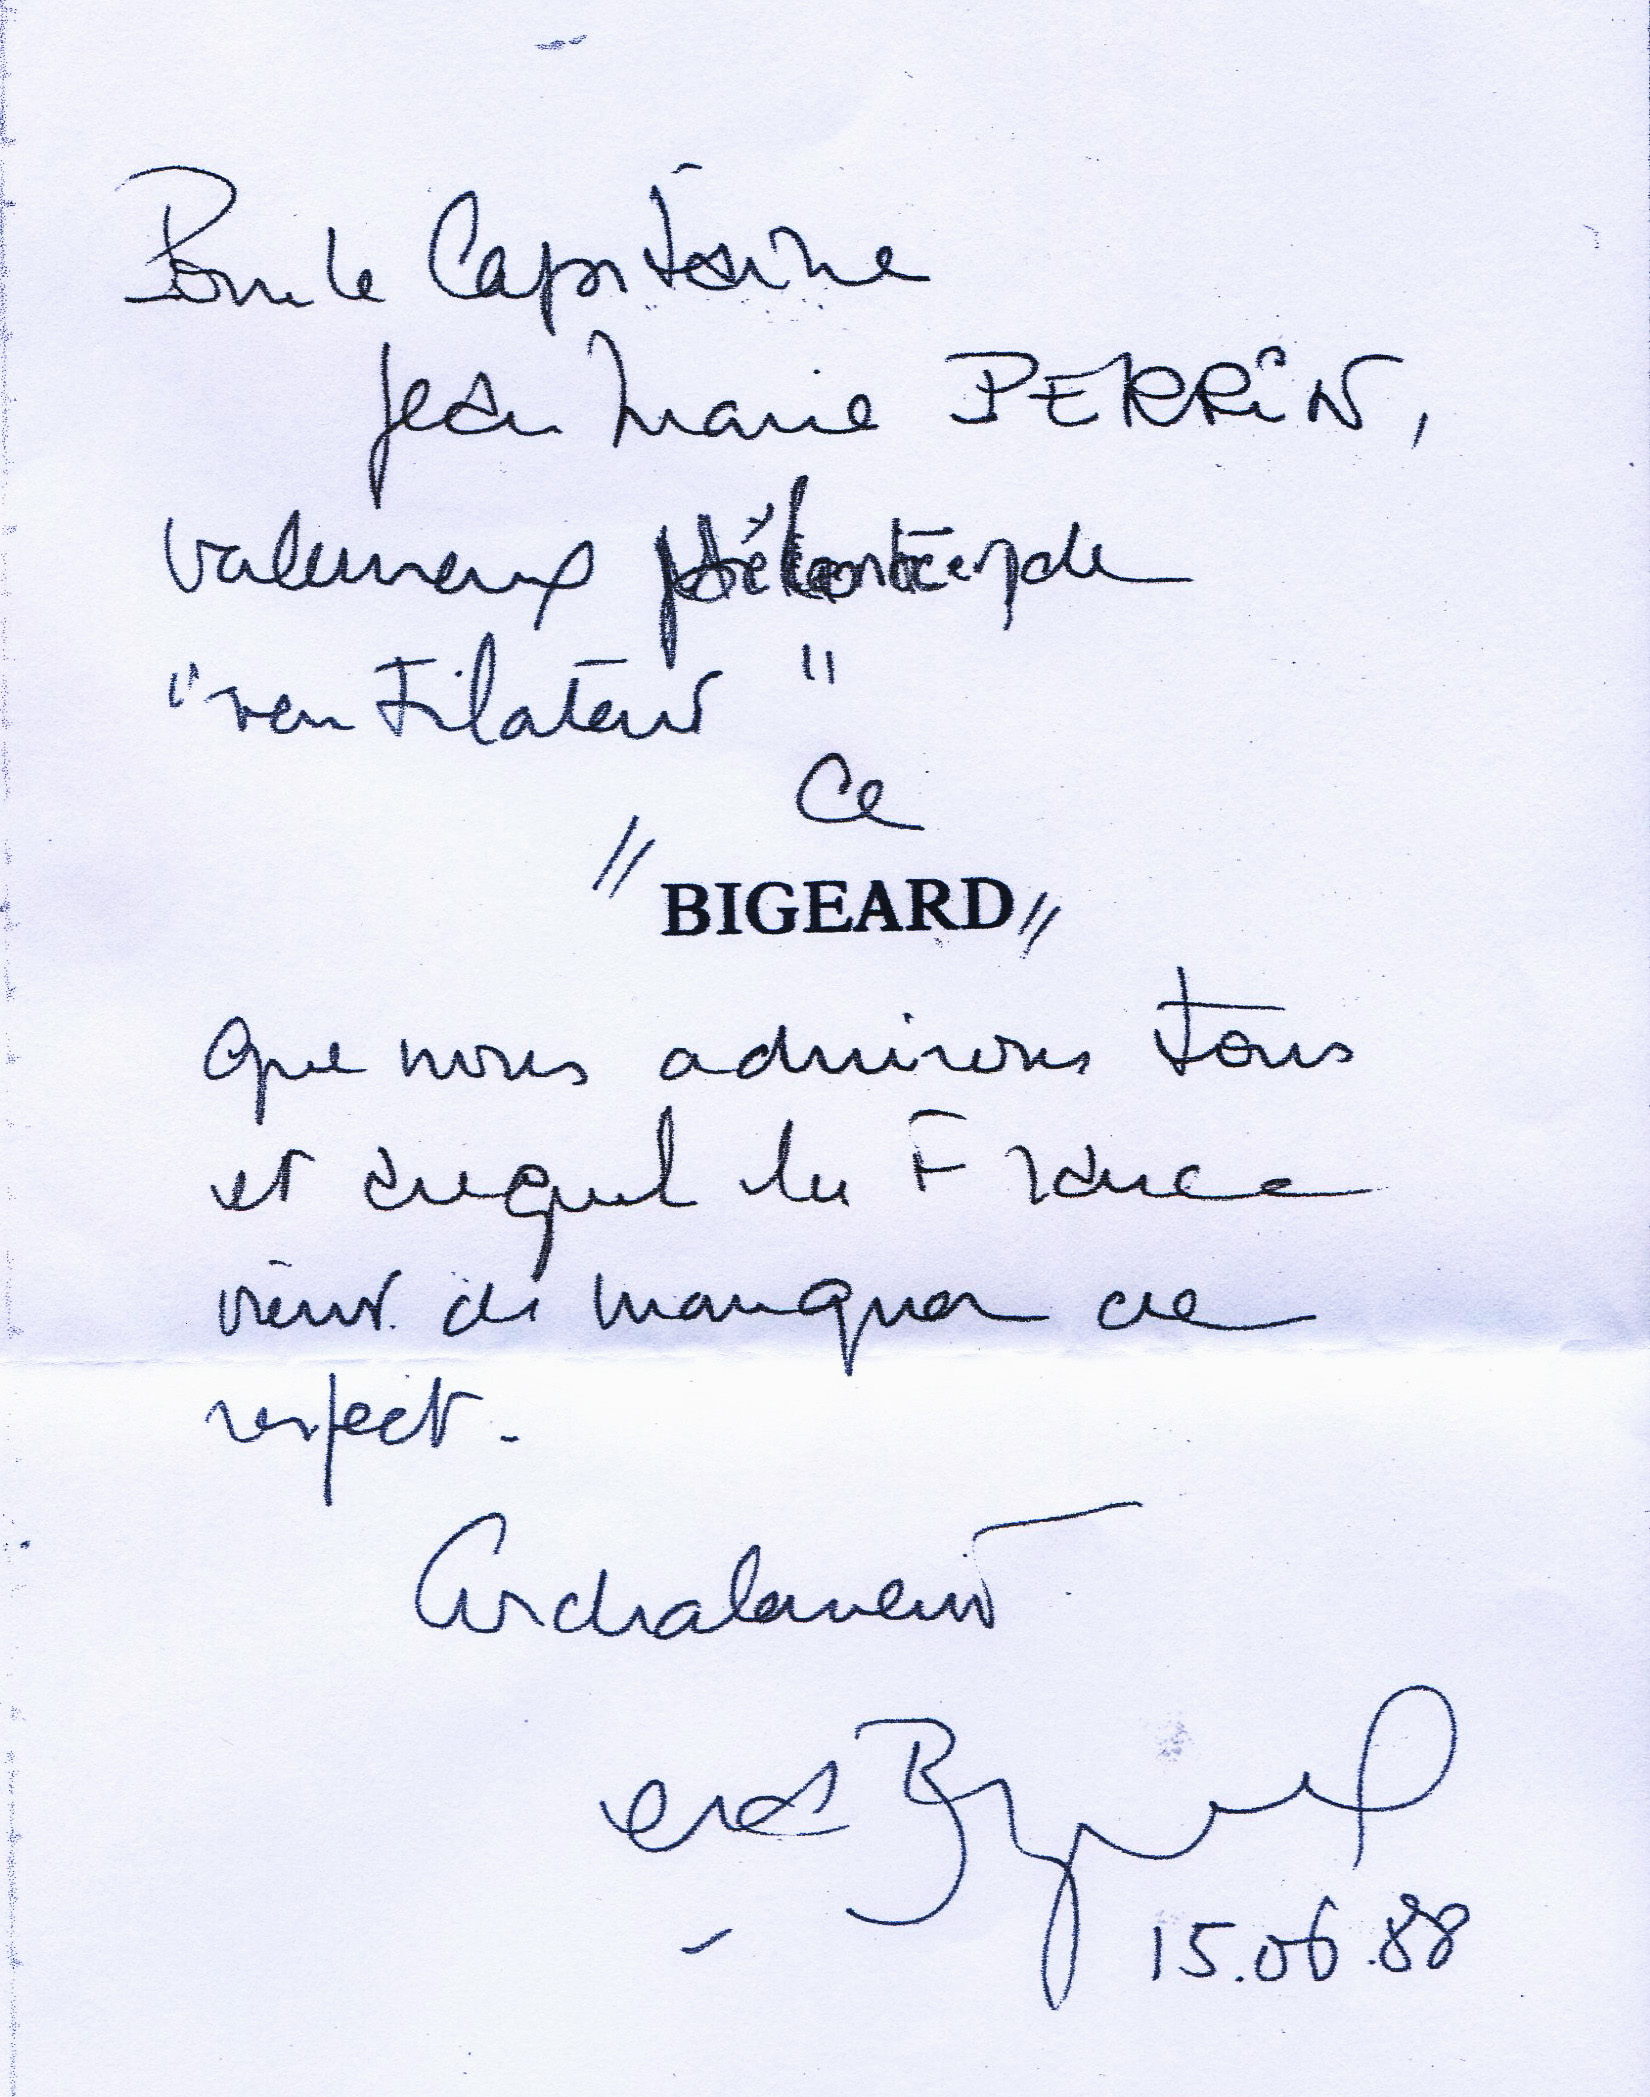 Pour le Capitaine
Jean Marie PERRIN,
valeureux de
"ventilateur"
Ce
"BIGEARD"
que nous admirons tous
et auquel la France
vient de manquer de
respect.
Cordialement
Bigeard
15.06.88